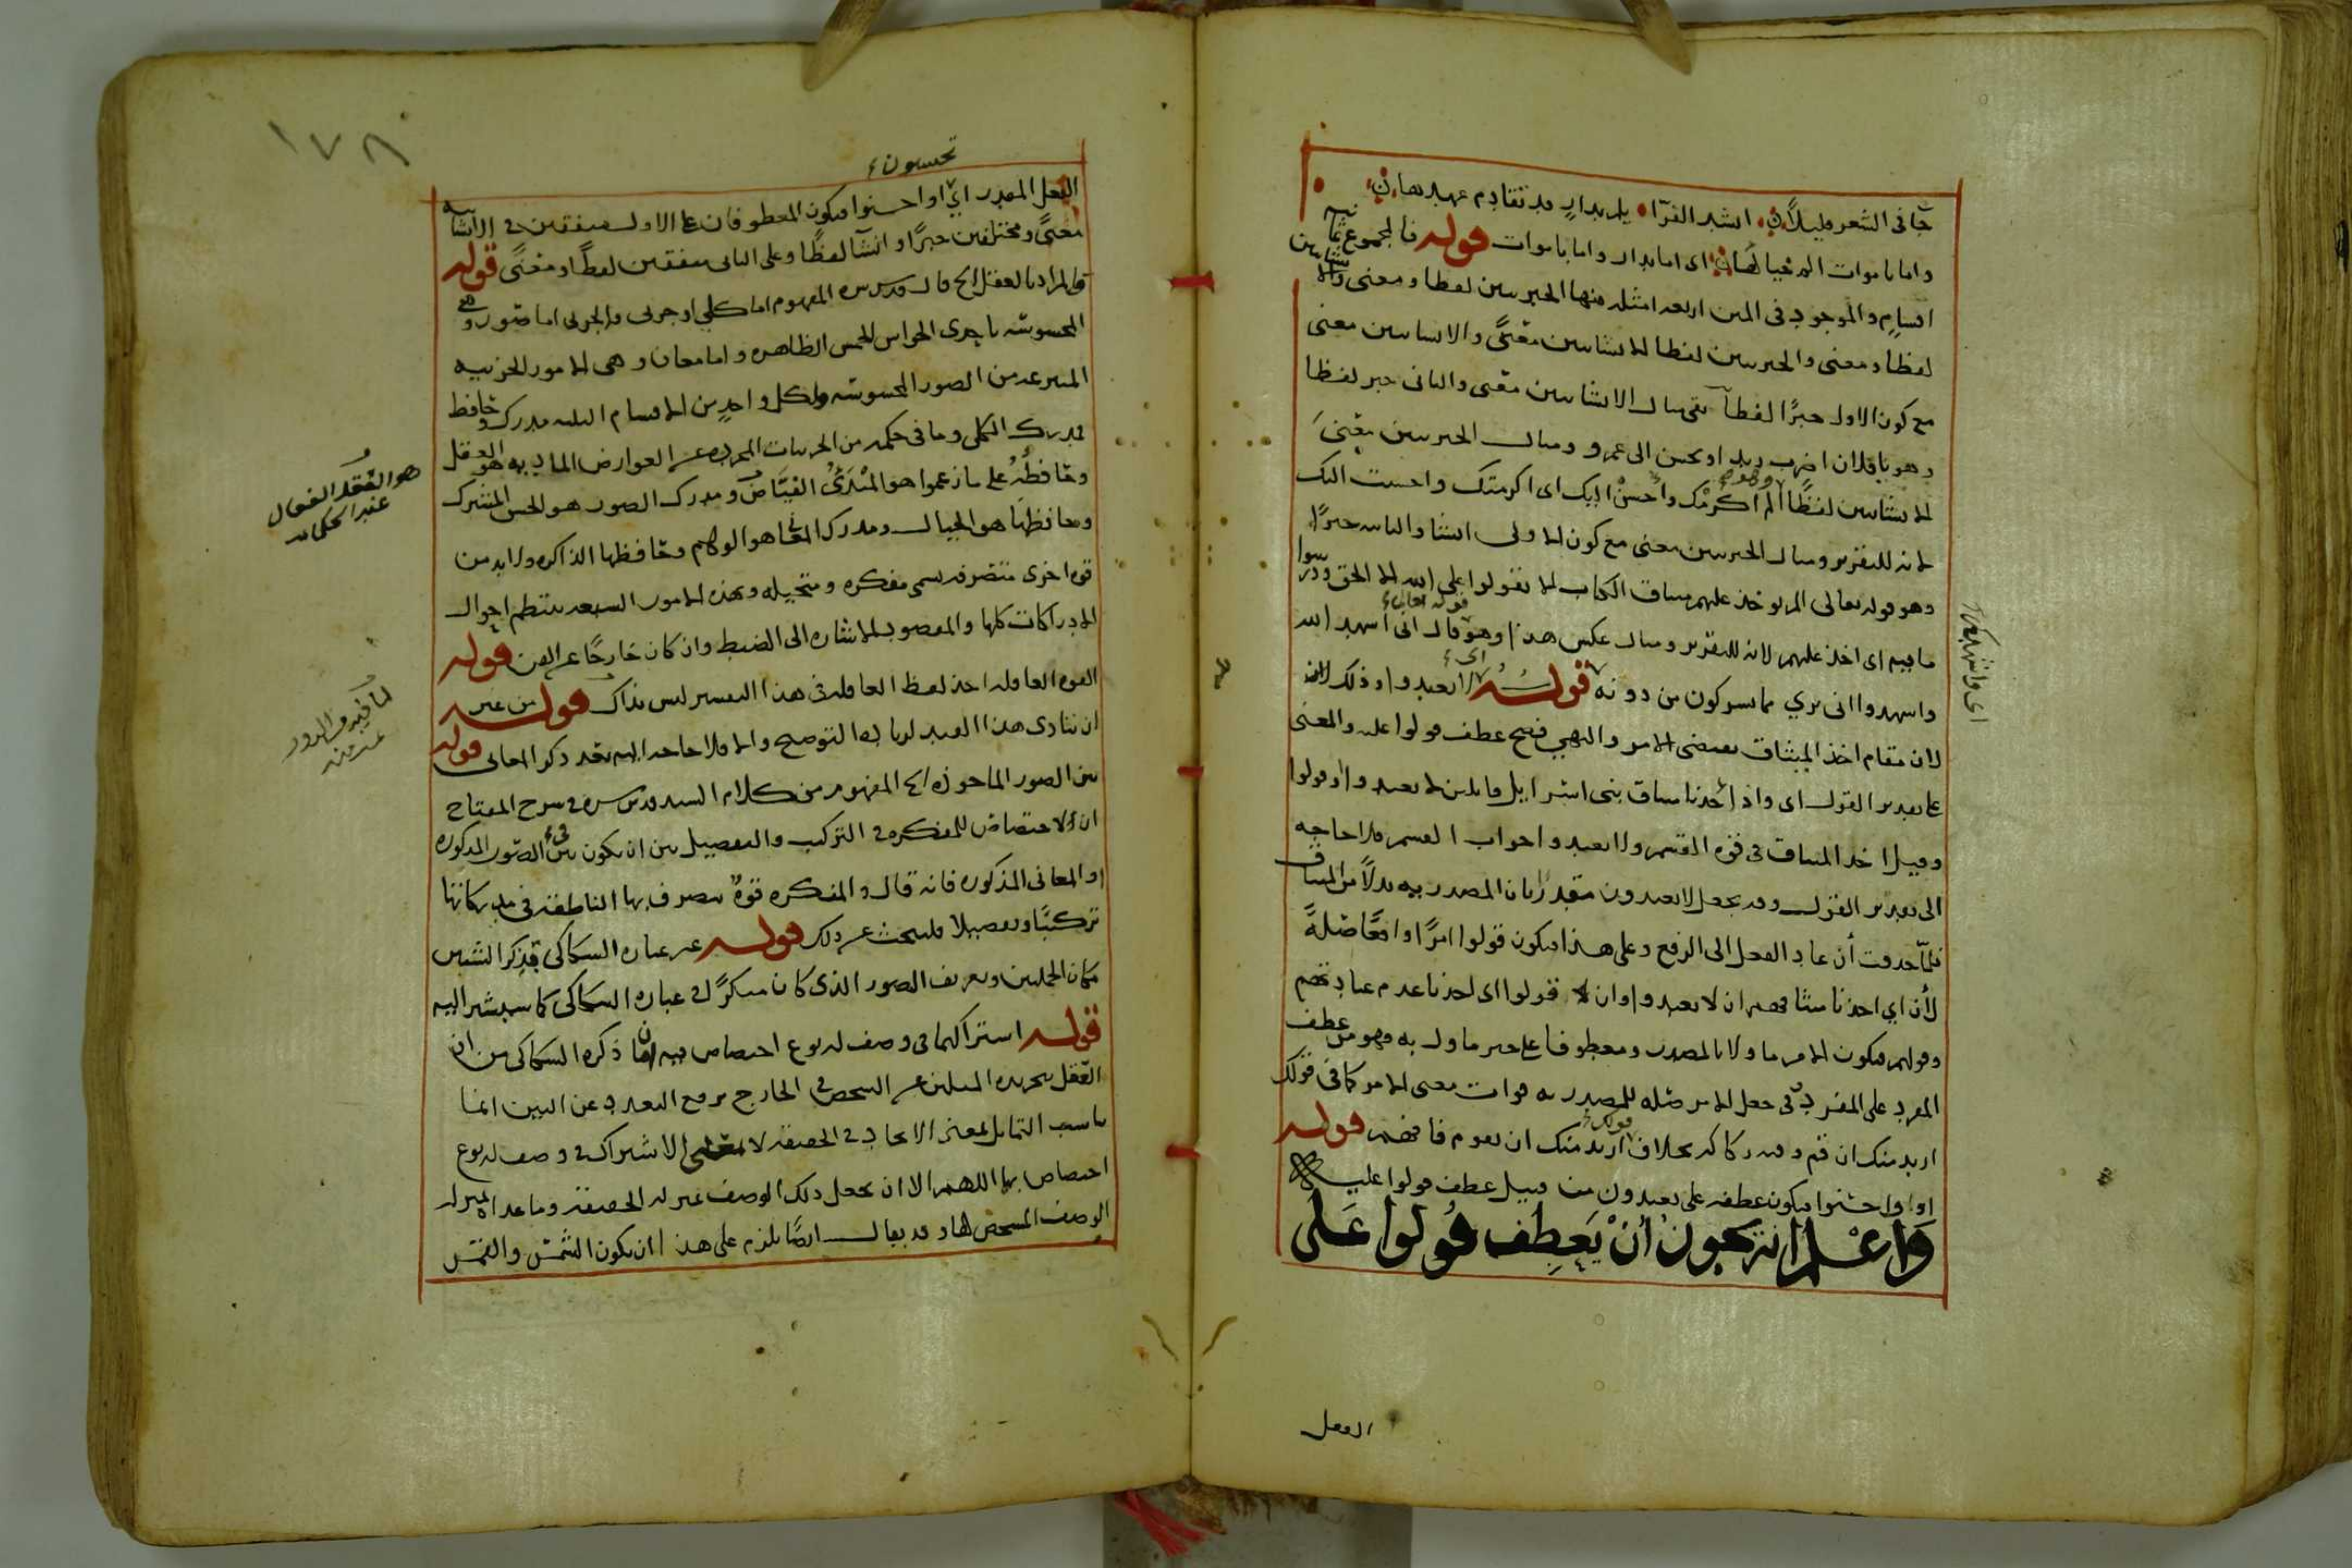 جا فى الشعر قليلاً انشد الفرّا يلم بدار قد تقادم عهدها
واما باموات الم خيالها اى اما بدار واما باموات قوله فالمجموع ثمانيه
اقسام والموجود فى المتن اربعه امثله منها الخبريتين لفظا ومعنى والانشايتين
لفظا ومعنى والخبريتين لفظا الانشايتين معنًى والانشايتين معنى
مع كون الاولى خبرًا لفظا بقى مثال الانشايتين معنى والثانى خبر لفظا
وهو يا فلان اضرب زيد او تحسن الى عمرو ومثال الخبريتين معنى
الانشايتين لفظًا ألم أكرمك وأحسنْ اليك اى اكرمتك واحسنت اليك
لانه للتقرير ومثال الخبريتين معنى مع كون الاولى انشا والثانيه خبرًا
وهو قوله تعالى الم يوخذ عليهم ميثاق الكتاب ان لا يقولوا على الله الا الحق ودرسوا
ما فيه اى اخذ عليهم لانه للتقرير ومثال عكس هذا وهو قوله تعالى قال انى اشهد الله
واشهدوا انى برى مما تشركون من دونه قوله اى لا تعبدوا وذلك
لان مقام اخذ الميثاق يقتضى الامر والنهي فصح عطف قولوا عليه والمعنى
على تقدير القول اى واذ اخذنا ميثاق بنى اسرايل قايلين لا تعبدوا وقولوا
وقيل اخذ الميثاق فى قوة القسم ولا تعبدوا جواب القسم فلا حاجه
الى تقدير القول وقد يجعل لا تعبدون مقدرًا بان المصدريه بدلاً من الميثاق
فلمّا حذفت أن عاد الفعل الى الرفع وعلى هذا فيكون قولوا امرًا واقعًا صلةً
لأن اي اخذنا ميثاقهم ان لا يعبدوا وان قولوا اى اخذنا عدم عبادتهم
وقولهم فيكون الامر ماولا بالمصدر ومعطوفا على خبر ماول به فهو من عطف
المفرد على المفرد وفى جعل الامر صله للمصدريه فوات معنى الامر كما فى قولك
اريد منك ان قم وفيه ركاكه بخلاف قولك اريد منك ان تقوم فافهم قوله
او واحسنوا فيكون عطفه على تعبدون من قبيل عطف قولوا عليه
وَاعْلم انه يجوزُ أنْ يَعطِف قُولوا عَلى
اى واشهدكم
الفعل
١٧٨
تحسنون
الفعل المقدر ايْ او احسنوا فيكون المعطوفان على الاول متفقين فى الانشائيه
معنًى ومختلفين خبرًا وانشآ لفظًا وعلى الثانى متفقين لفظًا ومعنًى قوله
فالمراد بالعقل الخ قال قدس سره المفهوم اما كلي او جزئى والجزئى اما صور وهى
المحسوسه باحدى الحواس الخمس الظاهره واما معان وهى الامور الجزئيه
المنتزعه من الصور المحسوسه ولكل واحدٍ من الاقسام الثلثه مدرك وحافظ
فمدرك الكلى وما فى حكمه من الجزئيات المجرده عن العوارض الماديه هو العقل
وحافظُهُ على ما زعموا هو المبْدَئُ الفيّاض ومدرك الصور هو الحس المشترك
وحافظها هو الخيال ومدرك المعانى هو الوهم وحافظها الذاكره ولا بد من
قوه اخرى متصرفه تسمى مفكره ومتخيله وبهذه الامور السبعه ينتظم احوال
الادراكات كلها والمقصود الاشاره الى الضبط وان كان خارجًا عن الفن قوله
القوه العاقله اخذ لفظ العاقله فى هذا التفسير ليس بذاك قوله من غير
ان يتادى هذا القيد لزياده التوضيح والا فلا حاجه اليه بعد ذكر المعانى قوله
بين الصور الماخوذه الخ المفهوم من كلام السيد قدس سره فى شرح المفتاح
ان لا اختصاص للمفكره فى التركيب والتفصيل بين ان يكون فى الصور المذكوره
او المعانى المذكوره فانه قال والمفكره قوةٌ يتصرف بها الناطقه فى مدركاتها
تركيبًا وتفصيلا فليبحث عن ذلك قوله عن عباره السكاكى بذكر الشيئين
مكان الجملتين وتعريف التصور الذى كان منكرًا فى عباره السكاكى كما سيشير اليه
قوله اشتراكهما فى وصف له نوع اختصاص فيه ان ما ذكره السكاكى من ان
العقل بتجريده المثلين عن التشخص فى الخارج يرفع التعدد عن البين انما
يناسب التماثل بمعنى الاتحاد فى الحقيقه لا بمعنى الاشتراك فى وصف له نوع
اختصاص بهما اللهم الا ان يجعل ذلك الوصف بمنزله الحقيقه وما عداه بمنزله
الوصف المشخص لها وقد يقال ايضًا يلزم على هذا ان يكون الشمس والقمر
هو العقل الفعال
عند الحكما
لما فيه من الدور